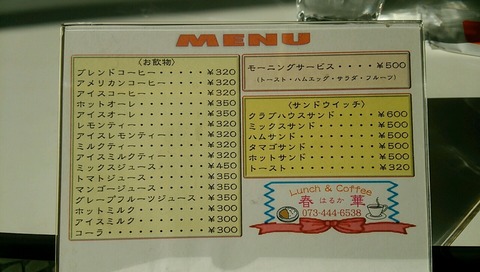 MENU
〈お飲物〉
ブレンドコーヒー・・・・・¥320
アメリカンコーヒー・・・・¥320
アイスコーヒー・・・・・・¥320
ホットオーレ・・・・・・・¥350
アイスオーレ・・・・・・・¥350
レモンティー・・・・・・・¥320
アイスレモンティー・・・・¥320
ミルクティー・・・・・・・¥320
アイスミルクティー・・・・¥320
ミックスジュース・・・・・¥450
トマトジュース・・・・・・¥350
マンゴージュース・・・・・¥350
グレープフルーツジュース・¥350
ホットミルク・・・・・・・¥300
アイスミルク・・・・・・・¥300
コーラ・・・・・・・・・・¥300
モーニングサービス・・・・¥500
(トースト・ハムエッグ・サラダ・フルーツ)
〈サンドウイッチ〉
クラブハウスサンド・・・・¥600
ミックスサンド・・・・・・¥500
ハムサンド・・・・・・・・¥500
タマゴサンド・・・・・・・¥500
ホットサンド・・・・・・・¥500
トースト・・・・・・・・・¥320
Lunch & Coffee
春 はるか 華
073-444-6538